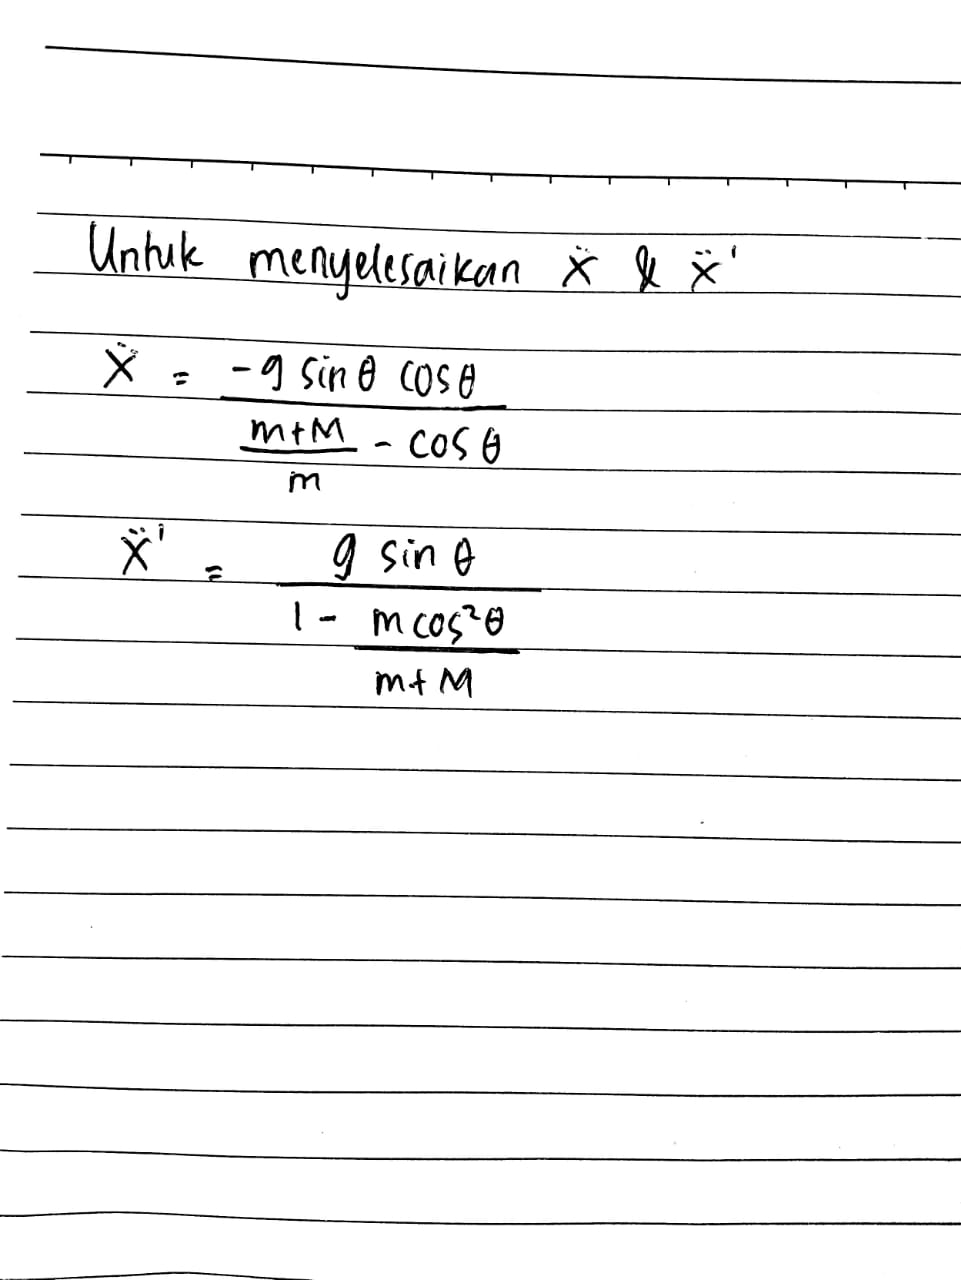 Untuk menyelesaikan ẍ & ẍ'
ẍ = -g sin θ cos θ
m+M - cos θ
m
ẍ' = g sin θ
1 - m cos²θ
m+M